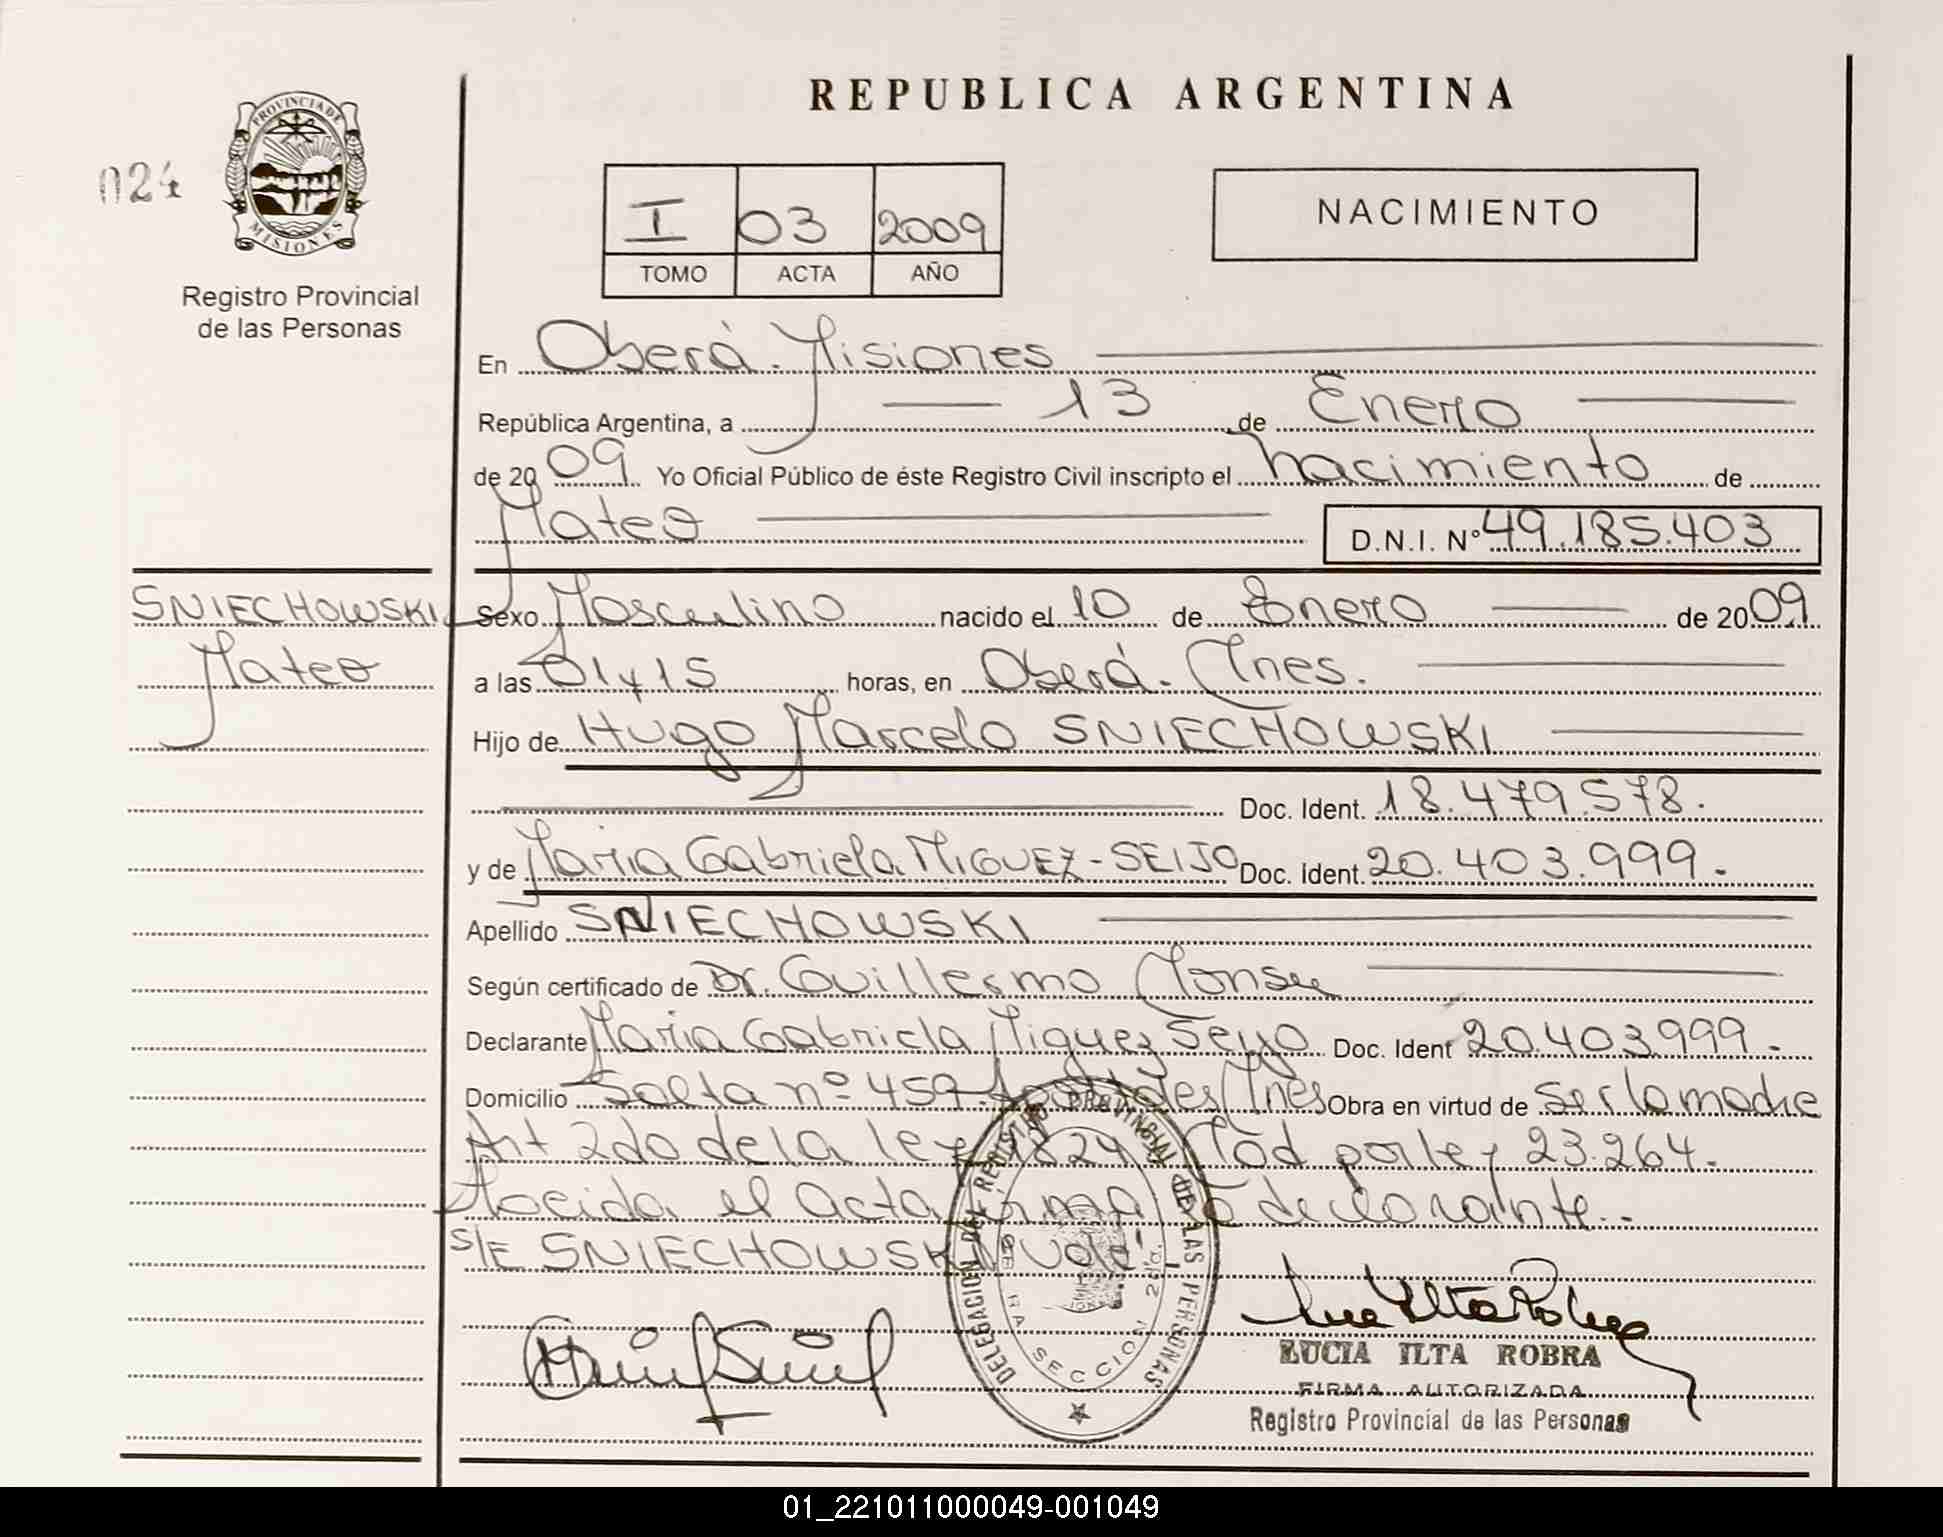 PROVINCIA DE
MISIONES
024
Registro Provincial
de las Personas
REPUBLICA ARGENTINA
I 03 2009
TOMO ACTA AÑO
NACIMIENTO
En Oberá. Misiones
República Argentina, a 13 de Enero
de 2009 Yo Oficial Público de éste Registro Civil inscripto el nacimiento de
Mateo D.N.I. Nº 49.185.403
SNIECHOWSKI
Mateo
Sexo Masculino nacido el 10 de Enero de 2009
a las 01y15 horas, en Oberá. Mnes.
Hijo de Hugo Marcelo SNIECHOWSKI
Doc. Ident. 18.479.578.
y de Maria Gabriela MIGUEZ-SEIJO Doc. Ident. 20.403.999.
Apellido SNIECHOWSKI
Según certificado de Dr. Guillermo
Declarante Maria Gabriela Miguez Seijo Doc. Ident 20.403.999.
Domicilio Salta nº 459. Apostoles Mnes Obra en virtud de ser la madre
Art 2do de la ley 18248 Mod por ley 23.264.
el acta firma declarante.
S/E SNIECHOWSKI Vale
DELEGACION DEL REGISTRO PROVINCIAL DE LAS PERSONAS
OBERA SECCION 2da.
LUCIA ILTA ROBRA
FIRMA AUTORIZADA
Registro Provincial de las Personas
01_221011000049-001049